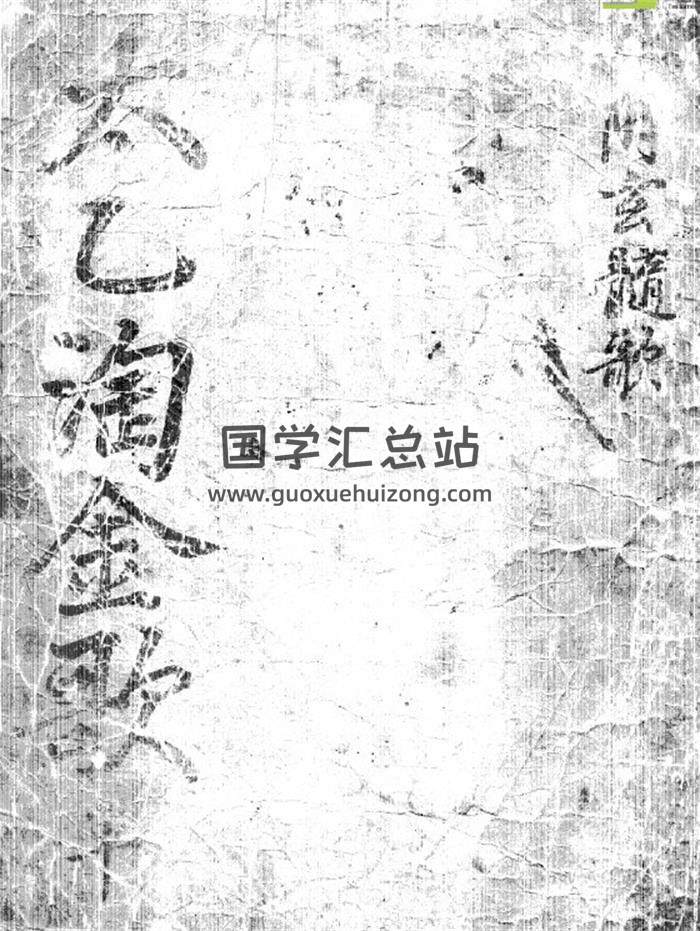 門玄髓歌
太乙淘金歌
国学汇总站
www.guoxuehuizong.com